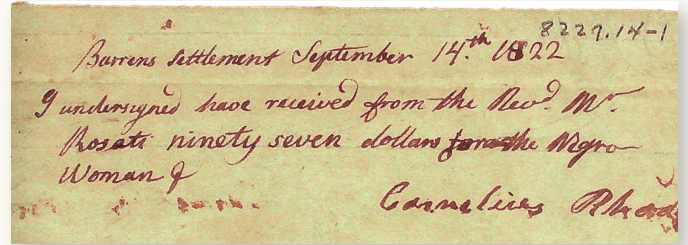 8227.14-1
Barrens settlement September 14.th 1822
I undersigned have received from the Revd. Mr.
Rosati ninety seven dollars for the Negro
Woman &
Cornelius